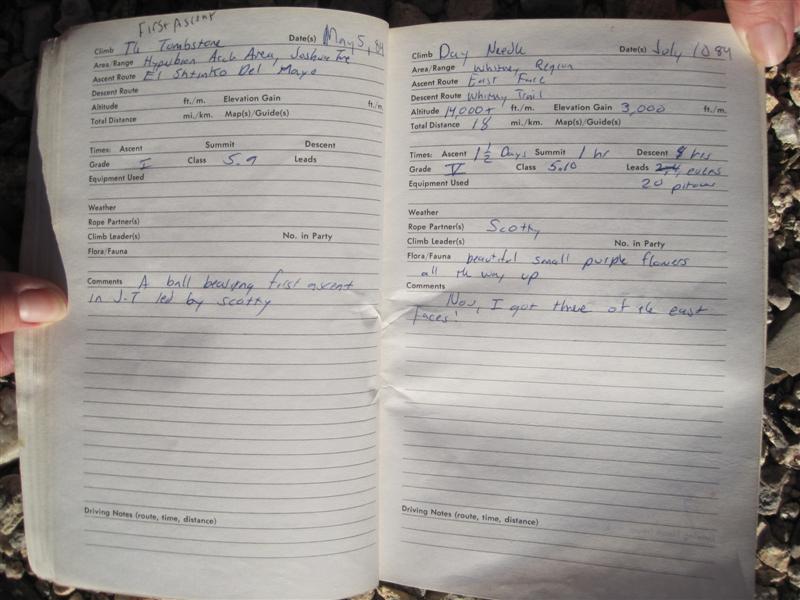 First Ascent
Climb The Tombstone Date(s) May 5, 84
Area/Range Hyperion Arch Area, Joshua Tree
Ascent Route El Shtinko Del Mayo
Descent Route
Altitude ft./m. Elevation Gain ft./m.
Total Distance mi./km. Map(s)/Guide(s)
Times: Ascent Summit Descent
Grade I Class 5.9 Leads
Equipment Used
Weather
Rope Partner(s)
Climb Leader(s) No. in Party
Flora/Fauna
Comments A ball bearing first ascent
in J.T led by Scotty
Driving Notes (route, time, distance)
Climb Day Needle Date(s) July 10 84
Area/Range Whitney Region
Ascent Route East Face
Descent Route Whitney Trail
Altitude 14,000+ ft./m. Elevation Gain 3,000 ft./m.
Total Distance 18 mi./km. Map(s)/Guide(s)
Times: Ascent 1 1/2 Days Summit 1 hr Descent 8 hrs
Grade V Class 5.10 Leads evens
Equipment Used 20 pitches
Weather
Rope Partner(s) Scotty
Climb Leader(s) No. in Party
Flora/Fauna beautiful small purple flowers
all the way up
Comments
Now, I got three of the east
faces!
Driving Notes (route, time, distance)